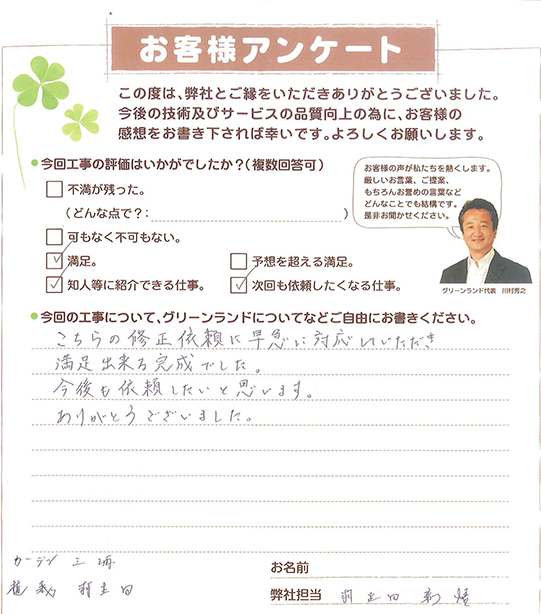 お客様アンケート
この度は、弊社とご縁をいただきありがとうございました。
今後の技術及びサービスの品質向上の為に、お客様の
感想をお書き下されば幸いです。よろしくお願いします。
今回工事の評価はいかがでしたか?(複数回答可)
不満が残った。
(どんな点で?: )
可もなく不可もない。
満足。
予想を超える満足。
知人等に紹介できる仕事。
次回も依頼したくなる仕事。
お客様の声が私たちを熱くします。
厳しいお言葉、ご提案、
もちろんお誉めの言葉など
どんなことでも結構です。
是非お聞かせください。
グリーンランド代表 川村秀之
今回の工事について、グリーンランドについてなどご自由にお書きください。
こちらの修正依頼に早急に対応していただき
満足出来る完成でした。
今後も依頼したいと思います。
ありがとうございました。
お名前
弊社担当